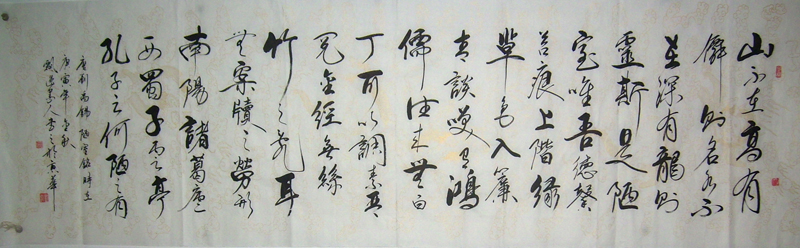 山不在高有
僊則名水不
在深有龍則
靈斯是陋
室唯吾德馨
苔痕上階綠
草色入簾
青談咲有鴻
儒往來無白
丁可以調素琴
閱金經無絲
竹之亂耳
無案牘之勞形
南陽諸葛廬
西蜀子云亭
孔子云何陋之有
唐劉禹錫陋室銘時在
庚寅年金秋
書之於京華